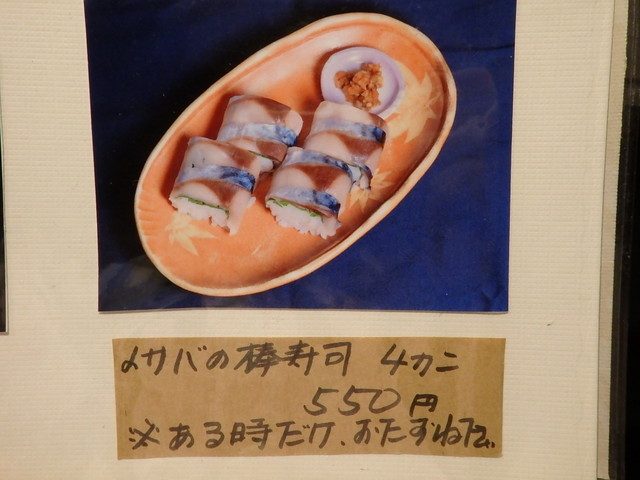 〆サバの棒寿司 4カニ
550円
※ある時だけ、おたずね下さい